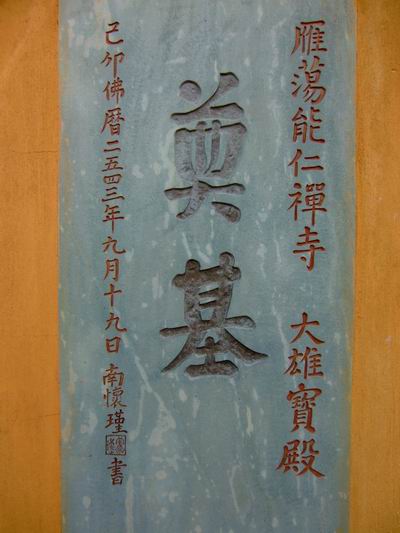 雁蕩能仁禪寺 大雄寶殿
奠基
己卯佛曆二五四三年九月十九日 南懷瑾書